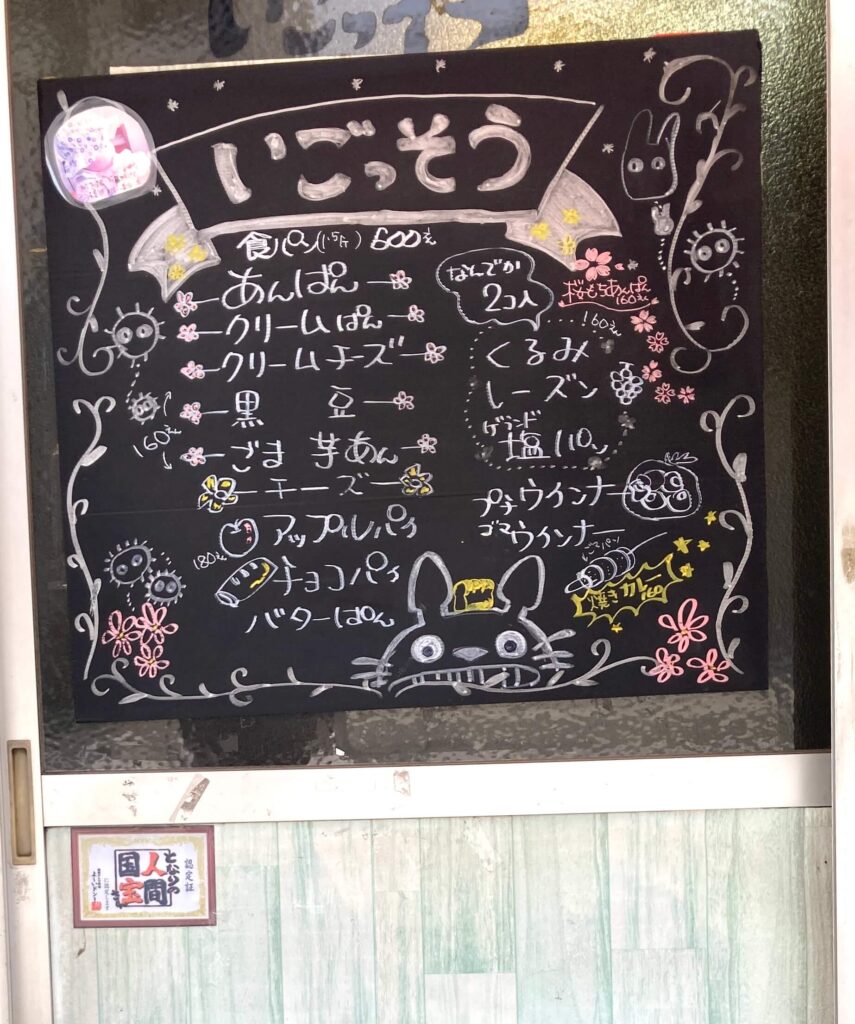 いごっそう
食パン(1.5斤) 600えん
あんぱん
クリームぱん
クリームチーズ
黒 豆
160えん
ごま 芋あん
チーズ
アップルパイ
180えん
チョコパイ
バターぱん
なんでか
2コ入
桜もちあんぱん
160えん
160えん
くるみ
レーズン
ゲランド
塩パン
プチウインナー
ゴマウインナー
焼きカレー
認定証
となりの
人間
国宝
さん